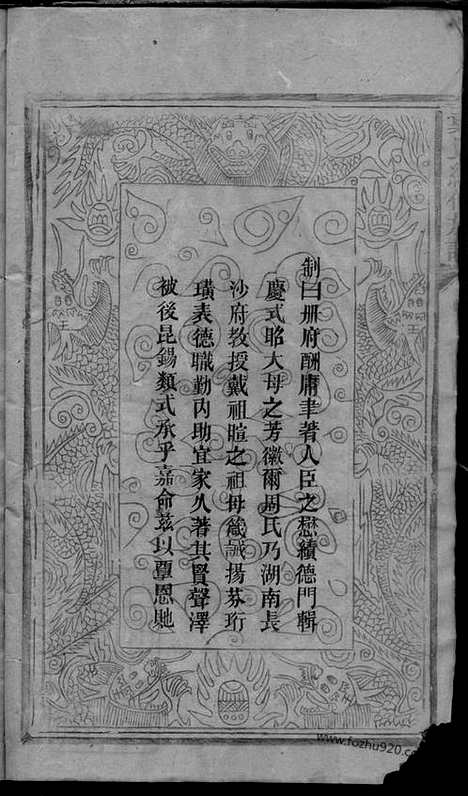 制曰册府酬庸聿著人臣之懋績德門輯
慶式昭大母之芳徽爾周氏乃湖南長
沙府教授戴祖暄之祖母箴誡揚芬珩
璜表德職勤内助宜家久著其賢聲澤
被後昆錫類式承乎嘉命兹以覃恩貤
www.fozhu920.com